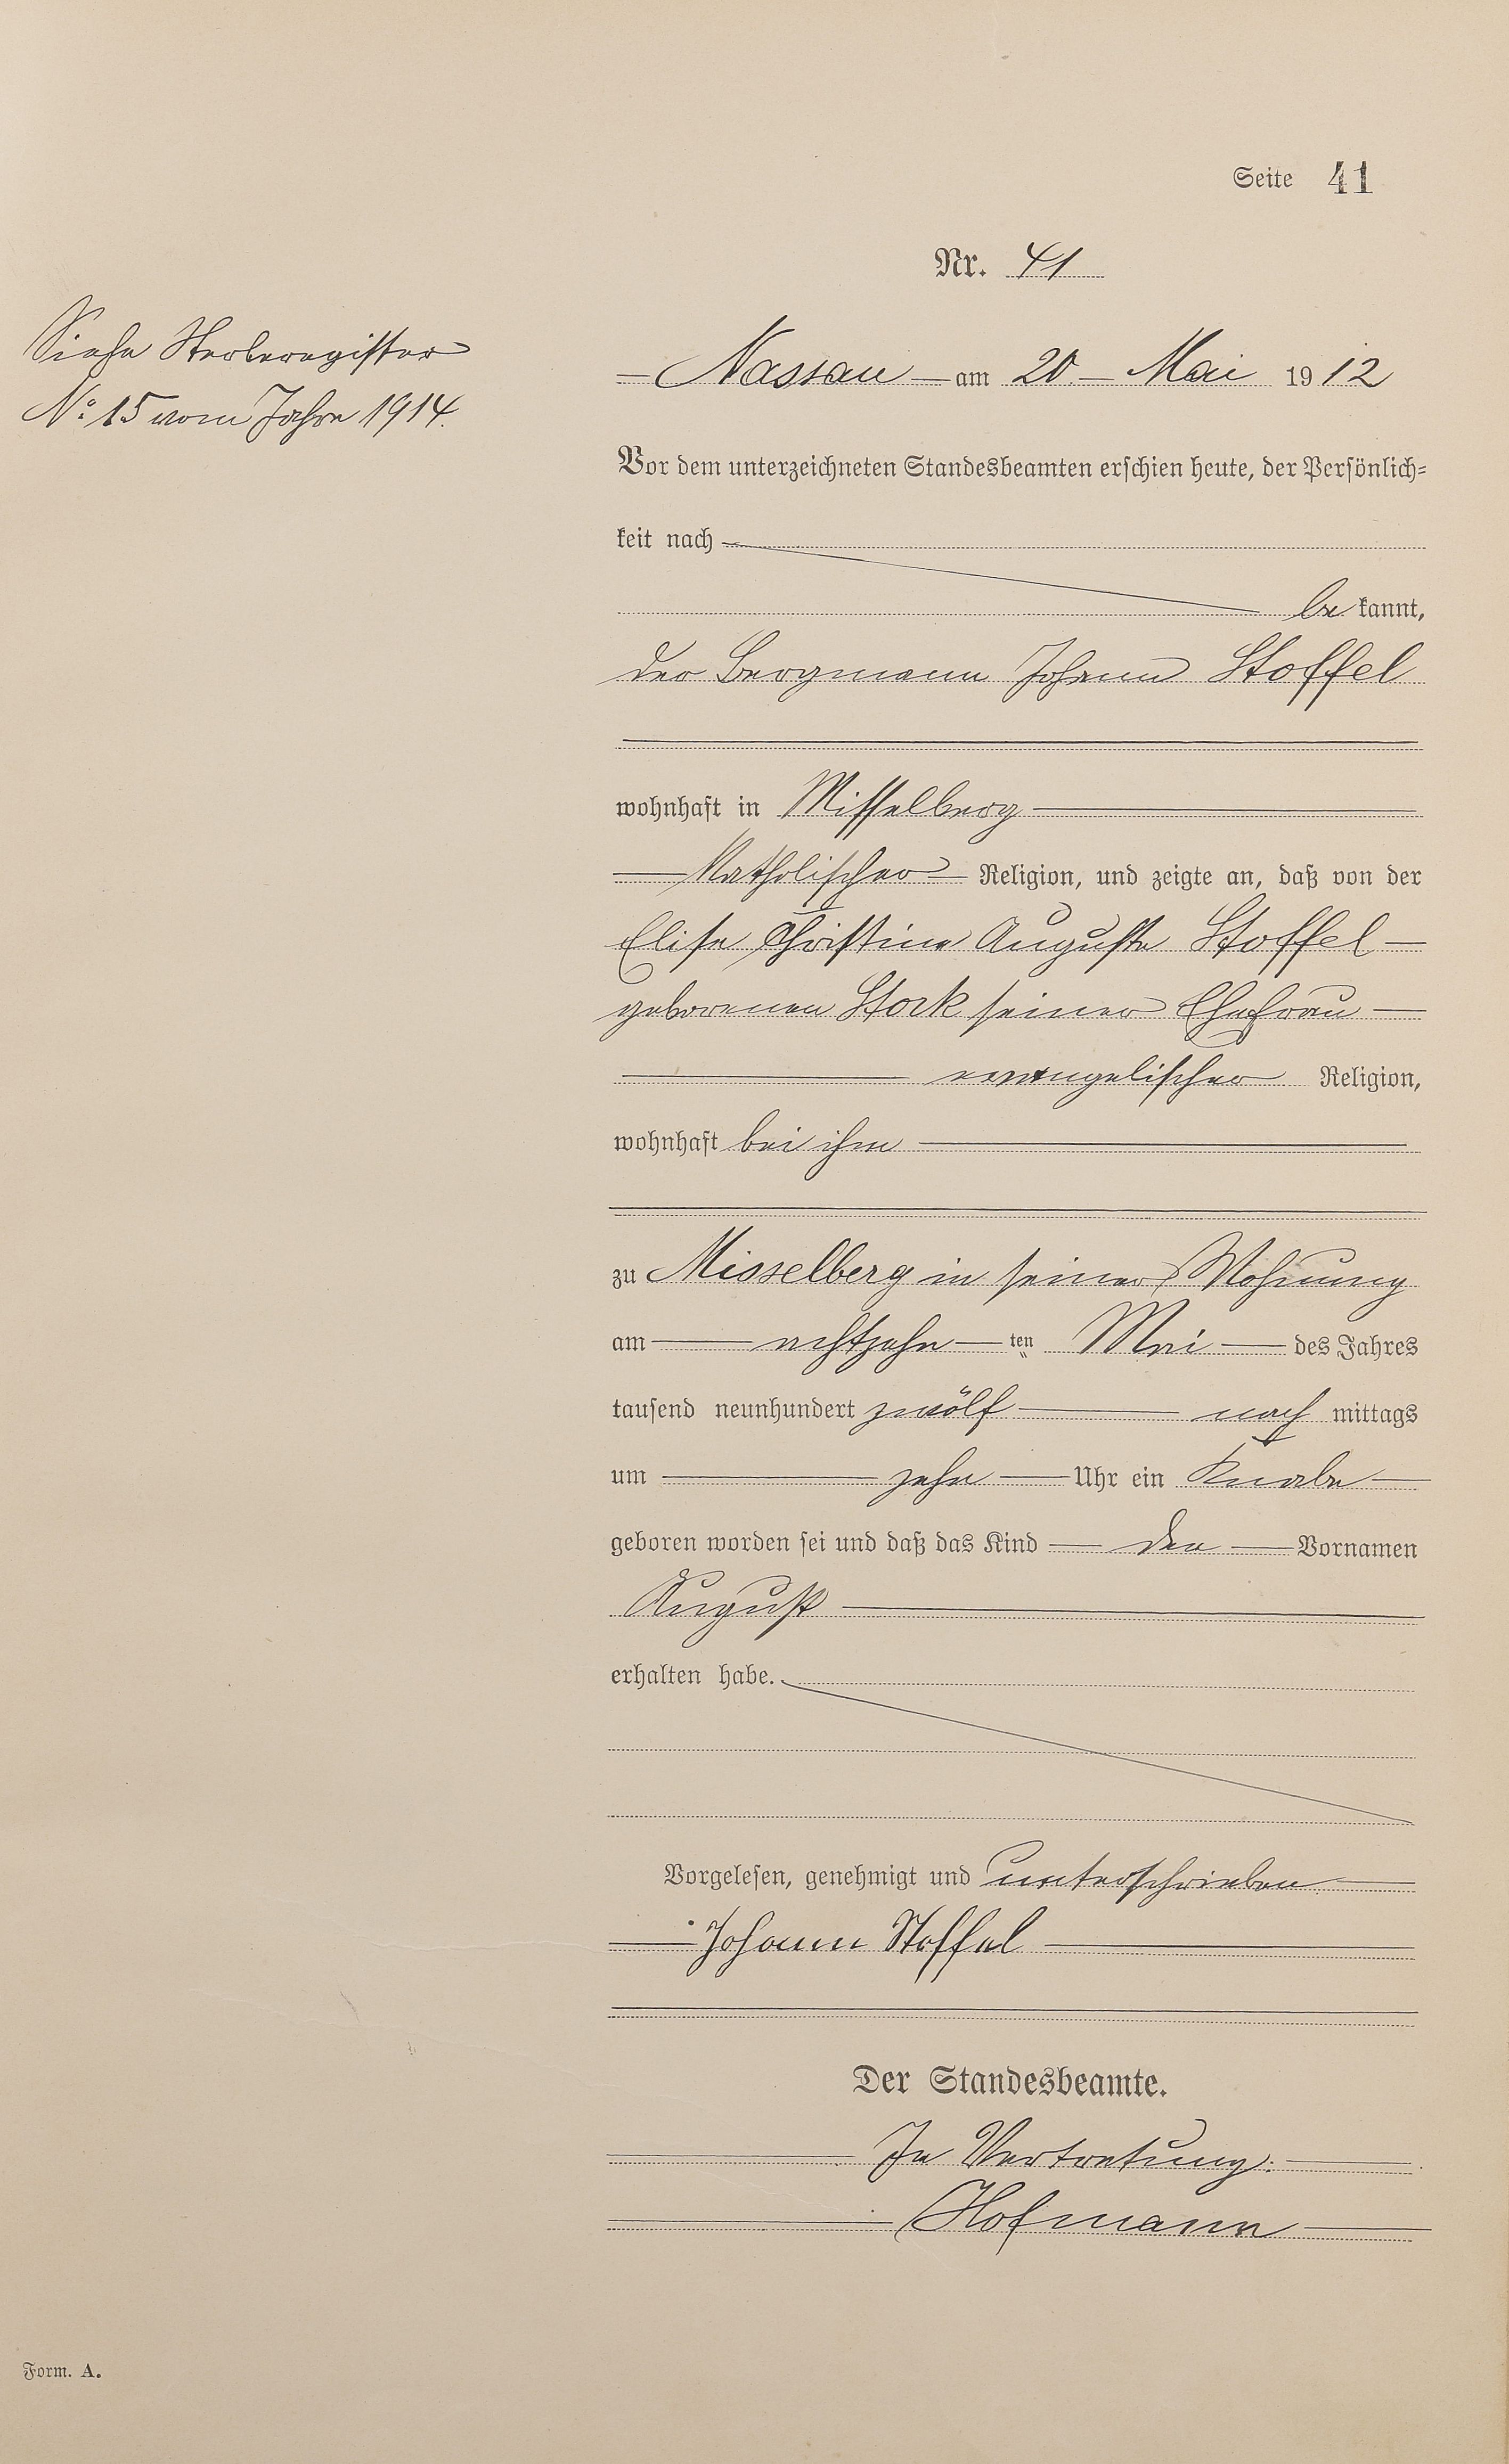 Seite 41
Nr. 41
Siehe Sterberegister
No 15 vom Jahre 1914.
Nassau am 20. Mai 1912
Vor dem unterzeichneten Standesbeamten erschien heute, der Persönlich-
keit nach
bekannt,
der Bergmann Johann Stoffel
wohnhaft in Misselberg
katholischer Religion, und zeigte an, daß von der
Elise Christine Auguste Stoffel
geborenen Stork seiner Ehefrau
evangelischer Religion,
wohnhaft bei ihm
zu Misselberg in seiner Wohnung
am achtzehnten Mai des Jahres
tausend neunhundert zwölf nachmittags
um zehn Uhr ein Knabe
geboren worden sei und daß das Kind den Vornamen
August
erhalten habe.
Vorgelesen, genehmigt und unterschrieben
Johann Stoffel
Der Standesbeamte.
In Vertretung:
Hofmann
Form. A.